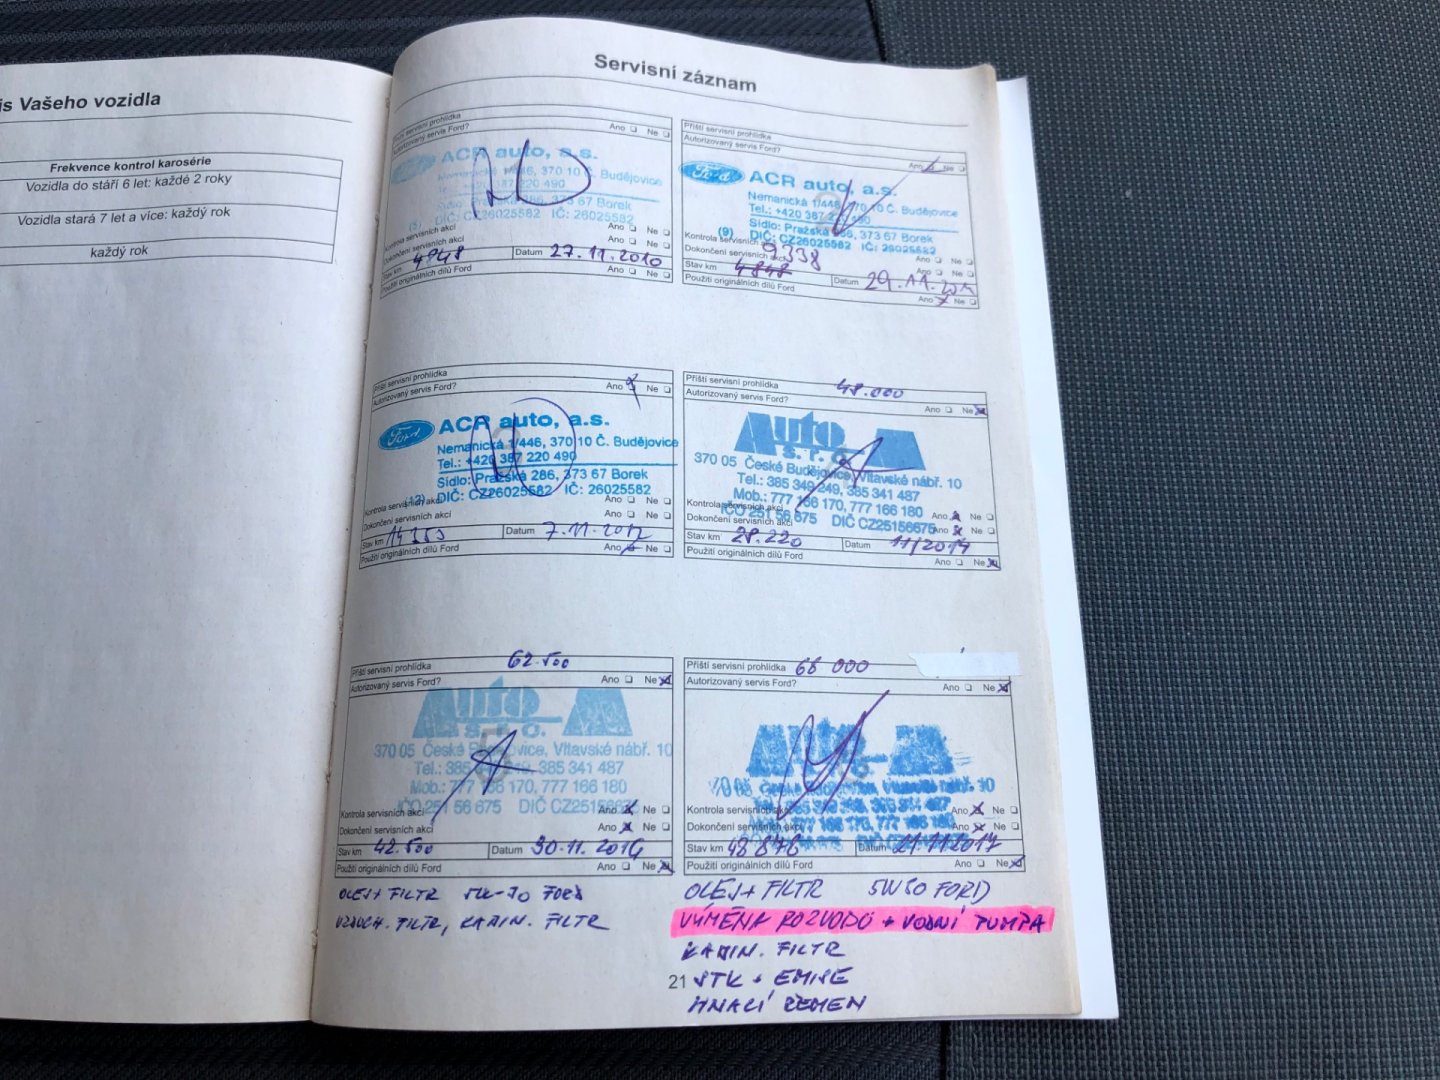 is Vašeho vozidla
Frekvence kontrol karosérie
Vozidla do stáří 6 let: každé 2 roky
Vozidla stará 7 let a více: každý rok
každý rok
Servisní záznam
Příští servisní prohlídka
Autorizovaný servis Ford? Ano Ne
Ford ACR auto, a.s.
Nemanická 1/446, 370 10 Č. Budějovice
Tel.: +420 387 220 490
Sídlo: Pražská 286, 373 67 Borek
(5) DIČ: CZ26025582 IČ: 26025582
Kontrola servisních akcí Ano Ne
Dokončení servisních akcí Ano Ne
Stav km 4948 Datum 27.11.2010
Použití originálních dílů Ford Ano Ne
Příští servisní prohlídka
Autorizovaný servis Ford? Ano Ne
Ford ACR auto, a.s.
Nemanická 1/446, 370 10 Č. Budějovice
Tel.: +420 387 220 490
Sídlo: Pražská 286, 373 67 Borek
(9) DIČ: CZ26025582 IČ: 26025582
Kontrola servisních Ano Ne
Dokončení servisních akcí 9338 Ano Ne
Stav km 4848 Datum 29.11.2011
Použití originálních dílů Ford Ano Ne
Příští servisní prohlídka
Autorizovaný servis Ford? Ano Ne
Ford ACR auto, a.s.
Nemanická 1/446, 370 10 Č. Budějovice
Tel.: +420 387 220 490
Sídlo: Pražská 286, 373 67 Borek
(12) DIČ: CZ26025582 IČ: 26025582
Kontrola servisních akcí Ano Ne
Dokončení servisních akcí Ano Ne
Stav km 14353 Datum 7.11.2012
Použití originálních dílů Ford Ano Ne
Příští servisní prohlídka 48.000
Autorizovaný servis Ford? Ano Ne
Auto A
s.r.o.
370 05 České Budějovice, Vltavské nábř. 10
Tel.: 385 349 249, 385 341 487
Mob.: 777 166 170, 777 166 180
IČO 251 56 675 DIČ CZ25156675
Kontrola servisních akcí Ano Ne
Dokončení servisních akcí Ano Ne
Stav km 28.220 Datum 11/2014
Použití originálních dílů Ford Ano Ne
Příští servisní prohlídka 62.500
Autorizovaný servis Ford? Ano Ne
Auto A
s.r.o.
370 05 České Budějovice, Vltavské nábř. 10
Tel.: 385 349 249, 385 341 487
Mob.: 777 166 170, 777 166 180
IČO 251 56 675 DIČ CZ25156675
Kontrola servisních akcí Ano Ne
Dokončení servisních akcí Ano Ne
Stav km 42.500 Datum 30.11.2016
Použití originálních dílů Ford Ano Ne
OLEJ + FILTR 5W-30 FORD
VZDUCH. FILTR, KABIN. FILTR
Příští servisní prohlídka 68 000
Autorizovaný servis Ford? Ano Ne
Auto A
370 05 České Budějovice, Vltavské nábř. 10
Tel.: 385 349 249, 385 341 487
Mob.: 777 166 170, 777 166 180
Kontrola servisních akcí Ano Ne
Dokončení servisních akcí Ano Ne
Stav km 48 876 Datum 21.11.2017
Použití originálních dílů Ford Ano Ne
OLEJ + FILTR 5W30 FORD
VÝMĚNA ROZVODŮ + VODNÍ PUMPA
KABIN. FILTR
21 STK + EMISE
HNACÍ ŘEMEN